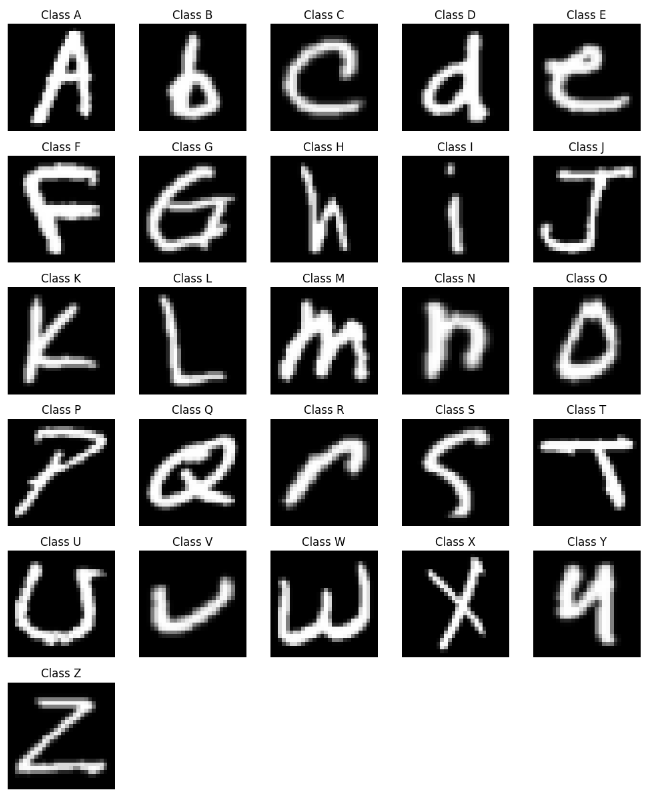 Class A Class B Class C Class D Class E
A b C d e
Class F Class G Class H Class I Class J
F G h i J
Class K Class L Class M Class N Class O
K L m n O
Class P Class Q Class R Class S Class T
P Q r S T
Class U Class V Class W Class X Class Y
U v w X y
Class Z
Z